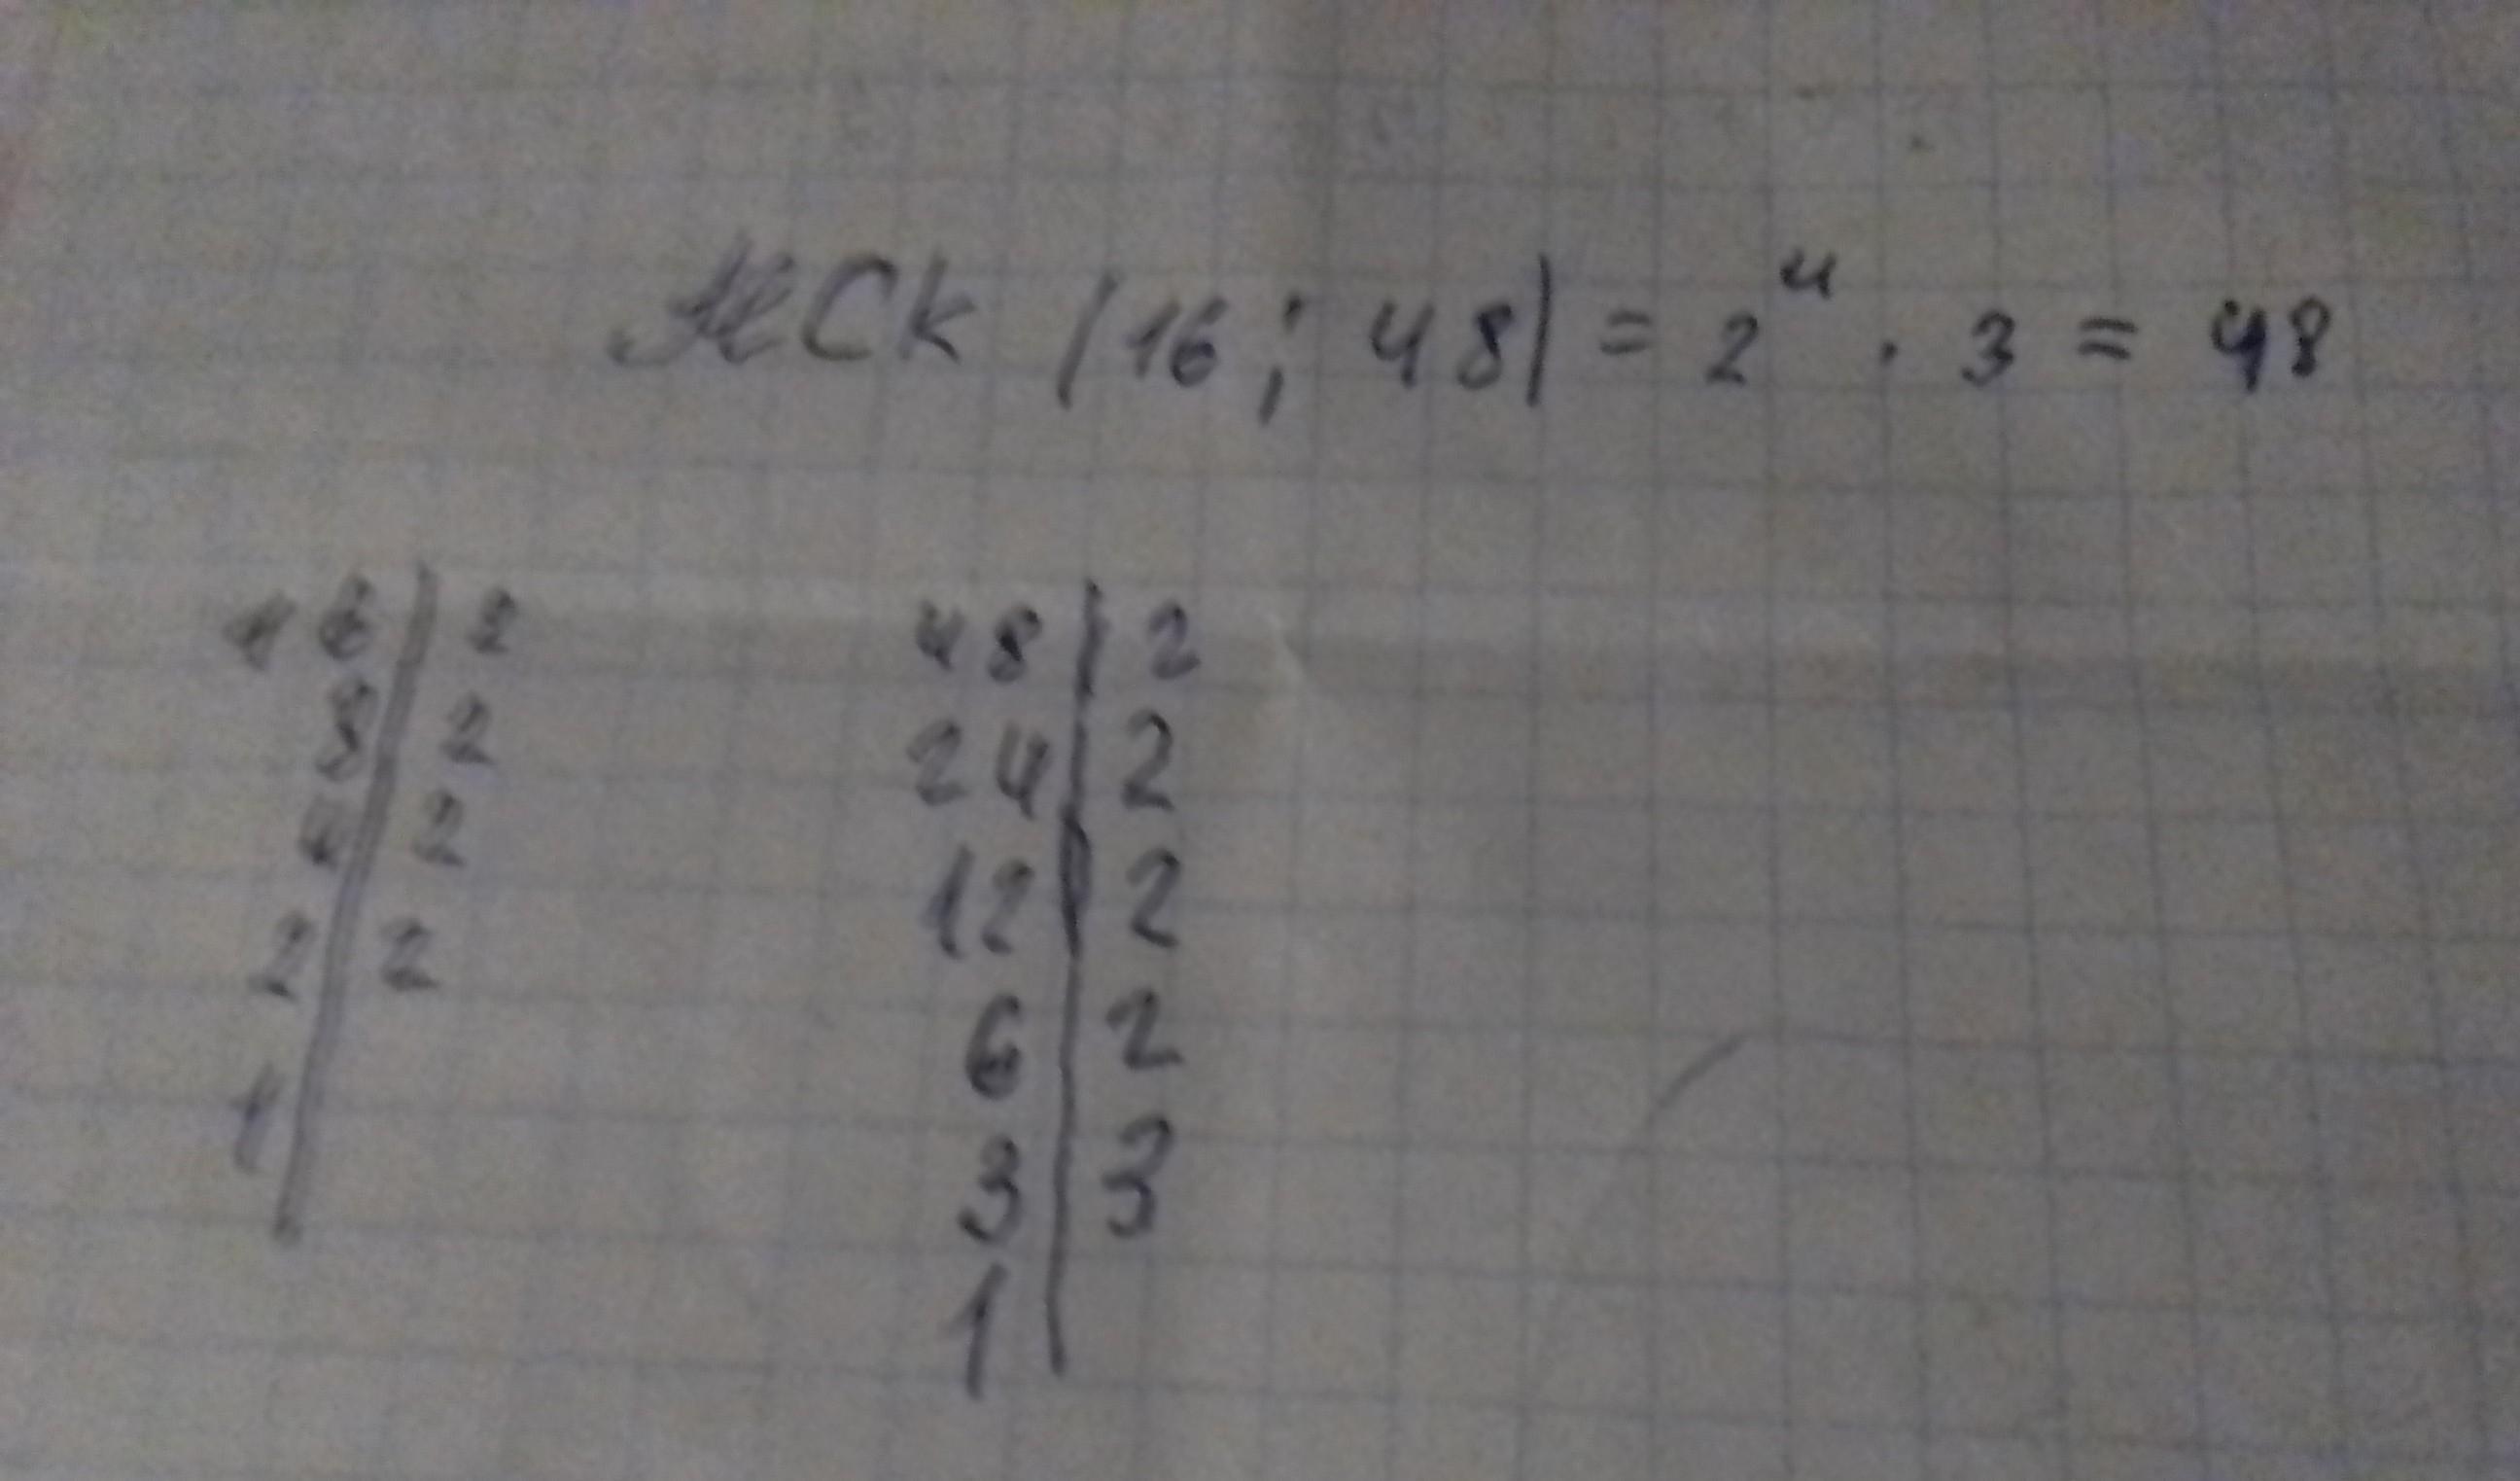 НСК (16; 48) = 2⁴ · 3 = 48
16 | 2
8 | 2
4 | 2
2 | 2
1 |
48 | 2
24 | 2
12 | 2
6 | 2
3 | 3
1 |